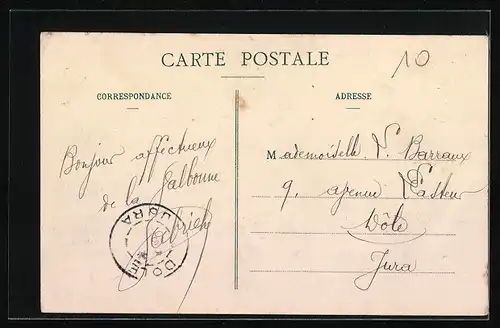 CARTE POSTALE
10
CORRESPONDANCE
ADRESSE
Bonjour affectueux
de la Valbonne
Mademoiselle V. Barraux
9, avenue Pasteur
Dôle
Jura
DOLE
JURA